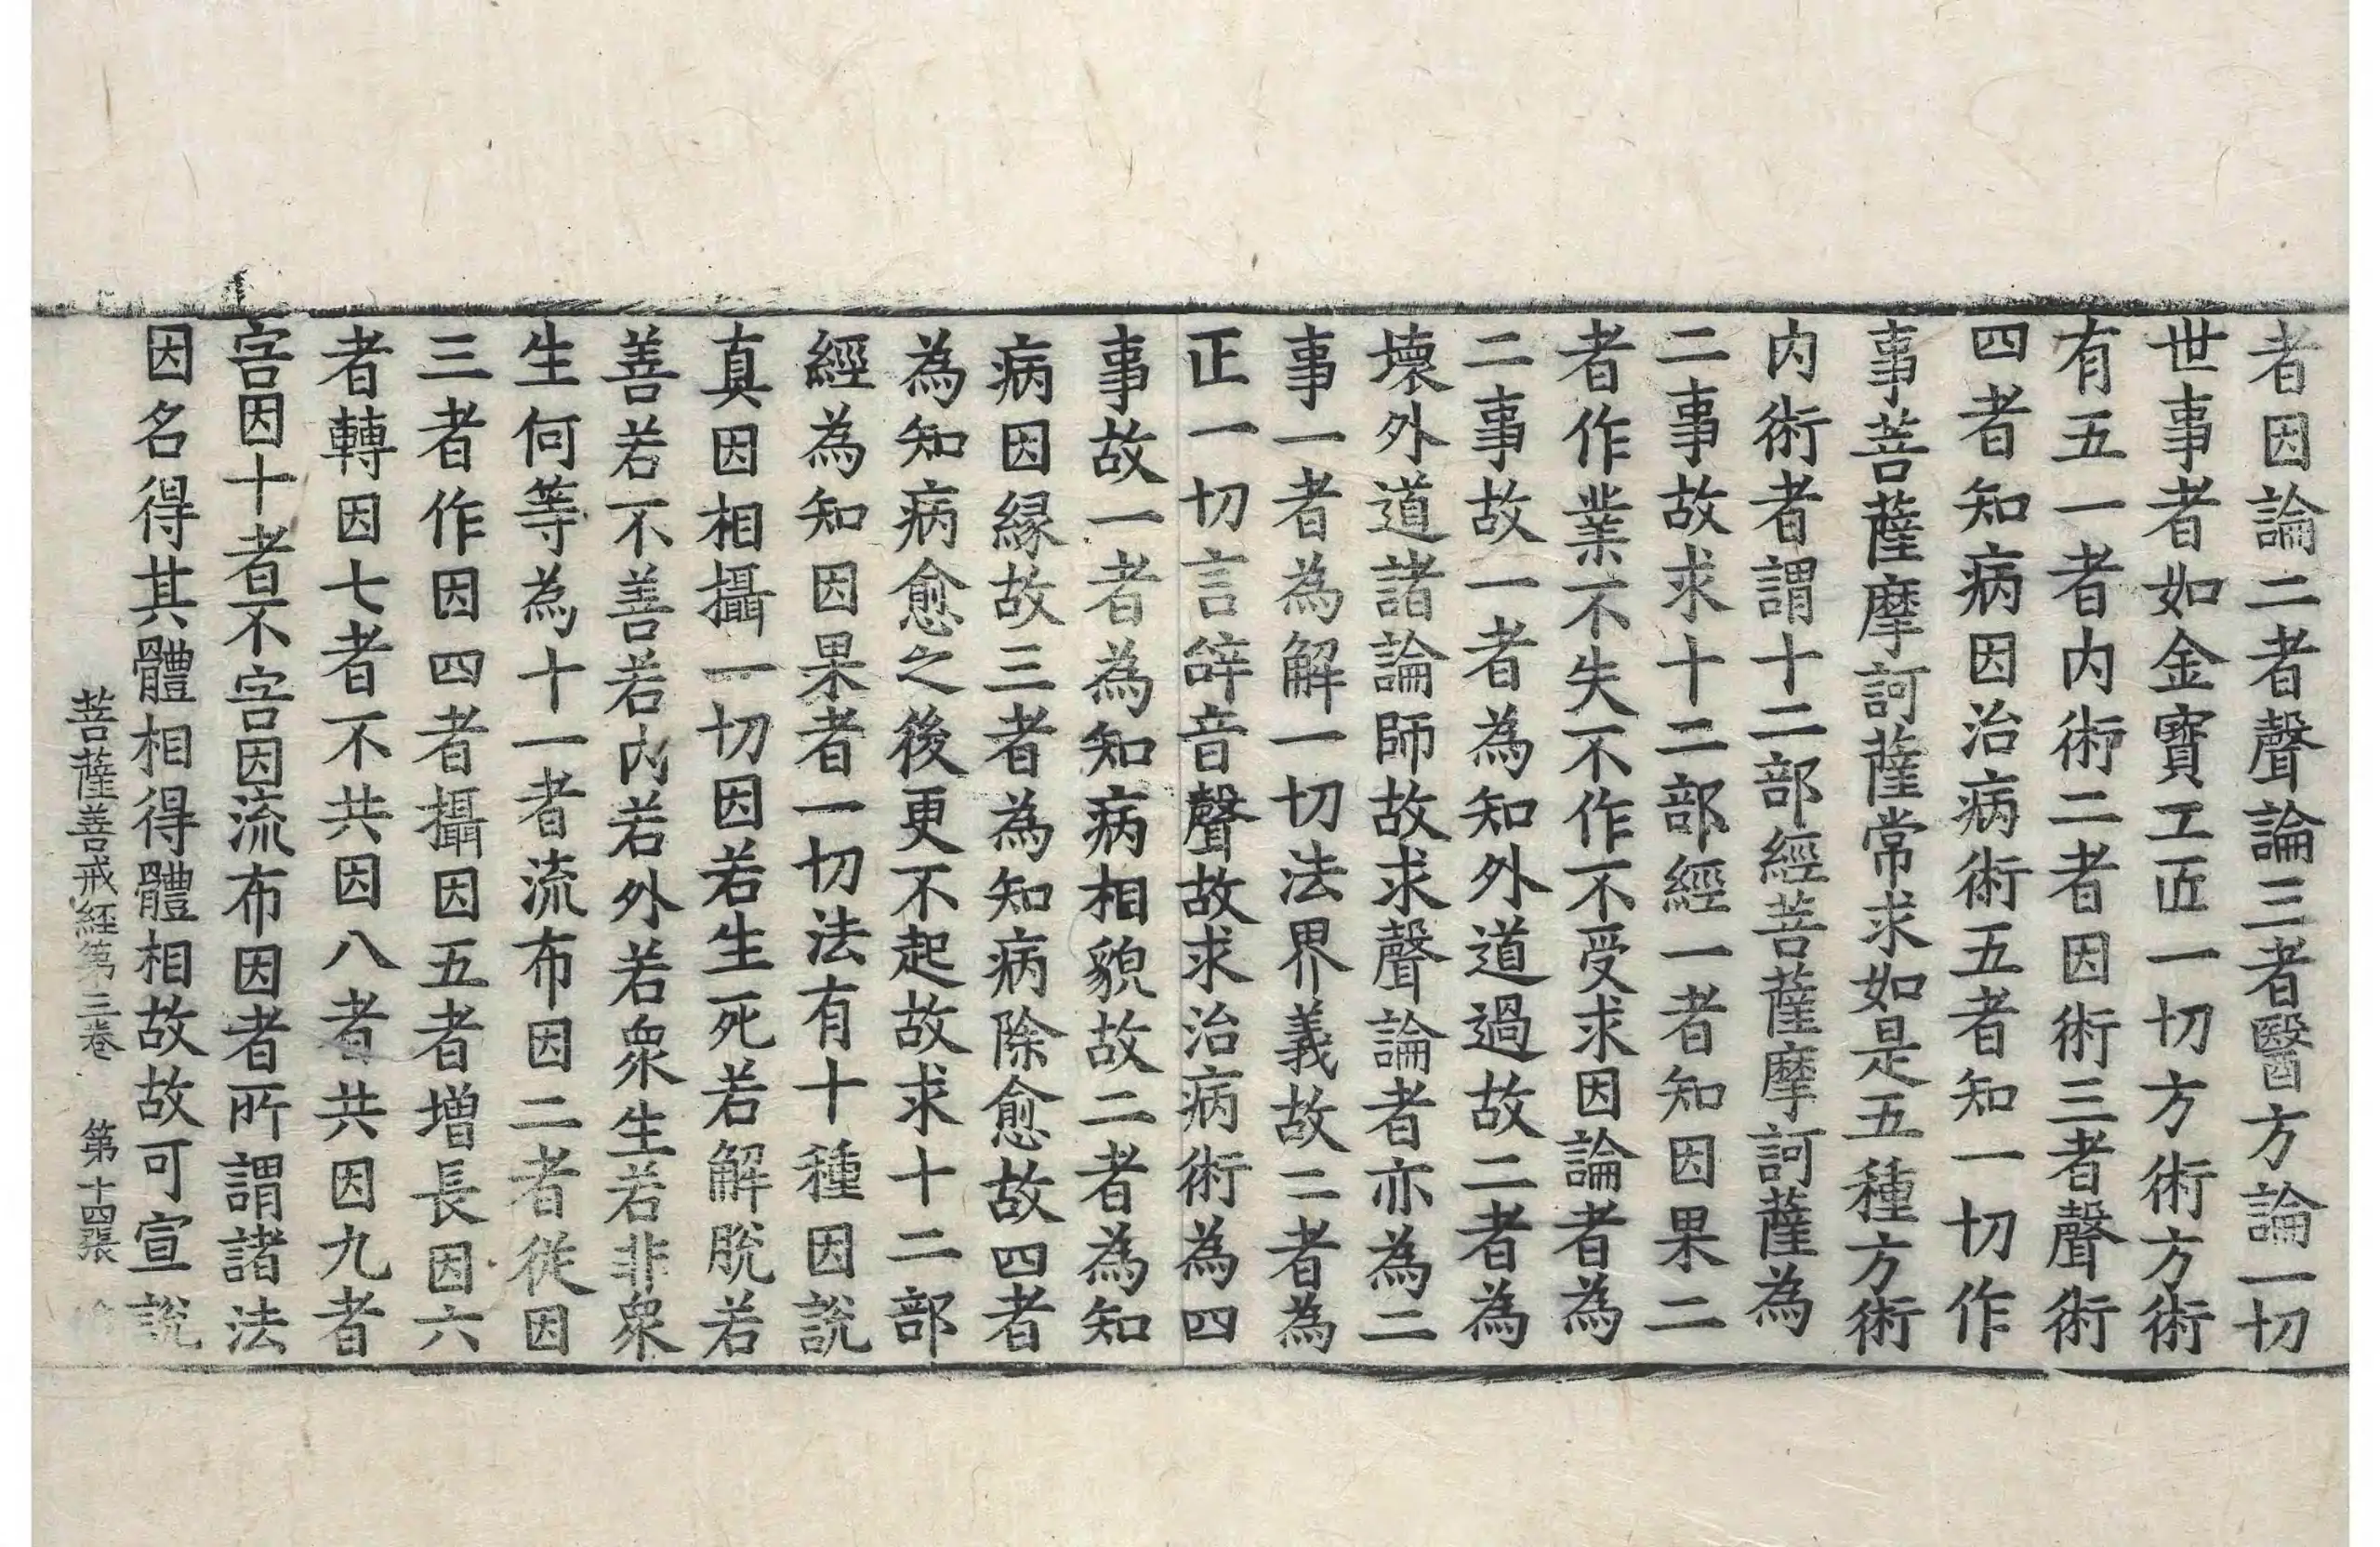 者因論二者聲論三者醫方論一切
世事者如金寳工匠一切方術方術
有五一者内術二者因術三者聲術
四者知病因治病術五者知一切作
事菩薩摩訶薩常求如是五種方術
内術者謂十二部經菩薩摩訶薩為
二事故求十二部經一者知因果二
者作業不失不作不受求因論者為
二事故一者為知外道過故二者為
壞外道諸論師故求聲論者亦為二
事一者為解一切法界義故二者為
正一切言辝音聲故求治病術為四
事故一者為知病相貌故二者為知
病因縁故三者為知病除愈故四者
為知病愈之後更不起故求十二部
經為知因果者一切法有十種因說
真因相攝一切因若生死若解脫若
善若不善若内若外若衆生若非衆
生何等為十一者流布因二者從因
三者作因四者攝因五者增長因六
者轉因七者不共因八者共因九者
害因十者不害因流布因者所謂諸法
因名得其體相得體相故故可宣說
菩薩善戒経第三卷　第十四張